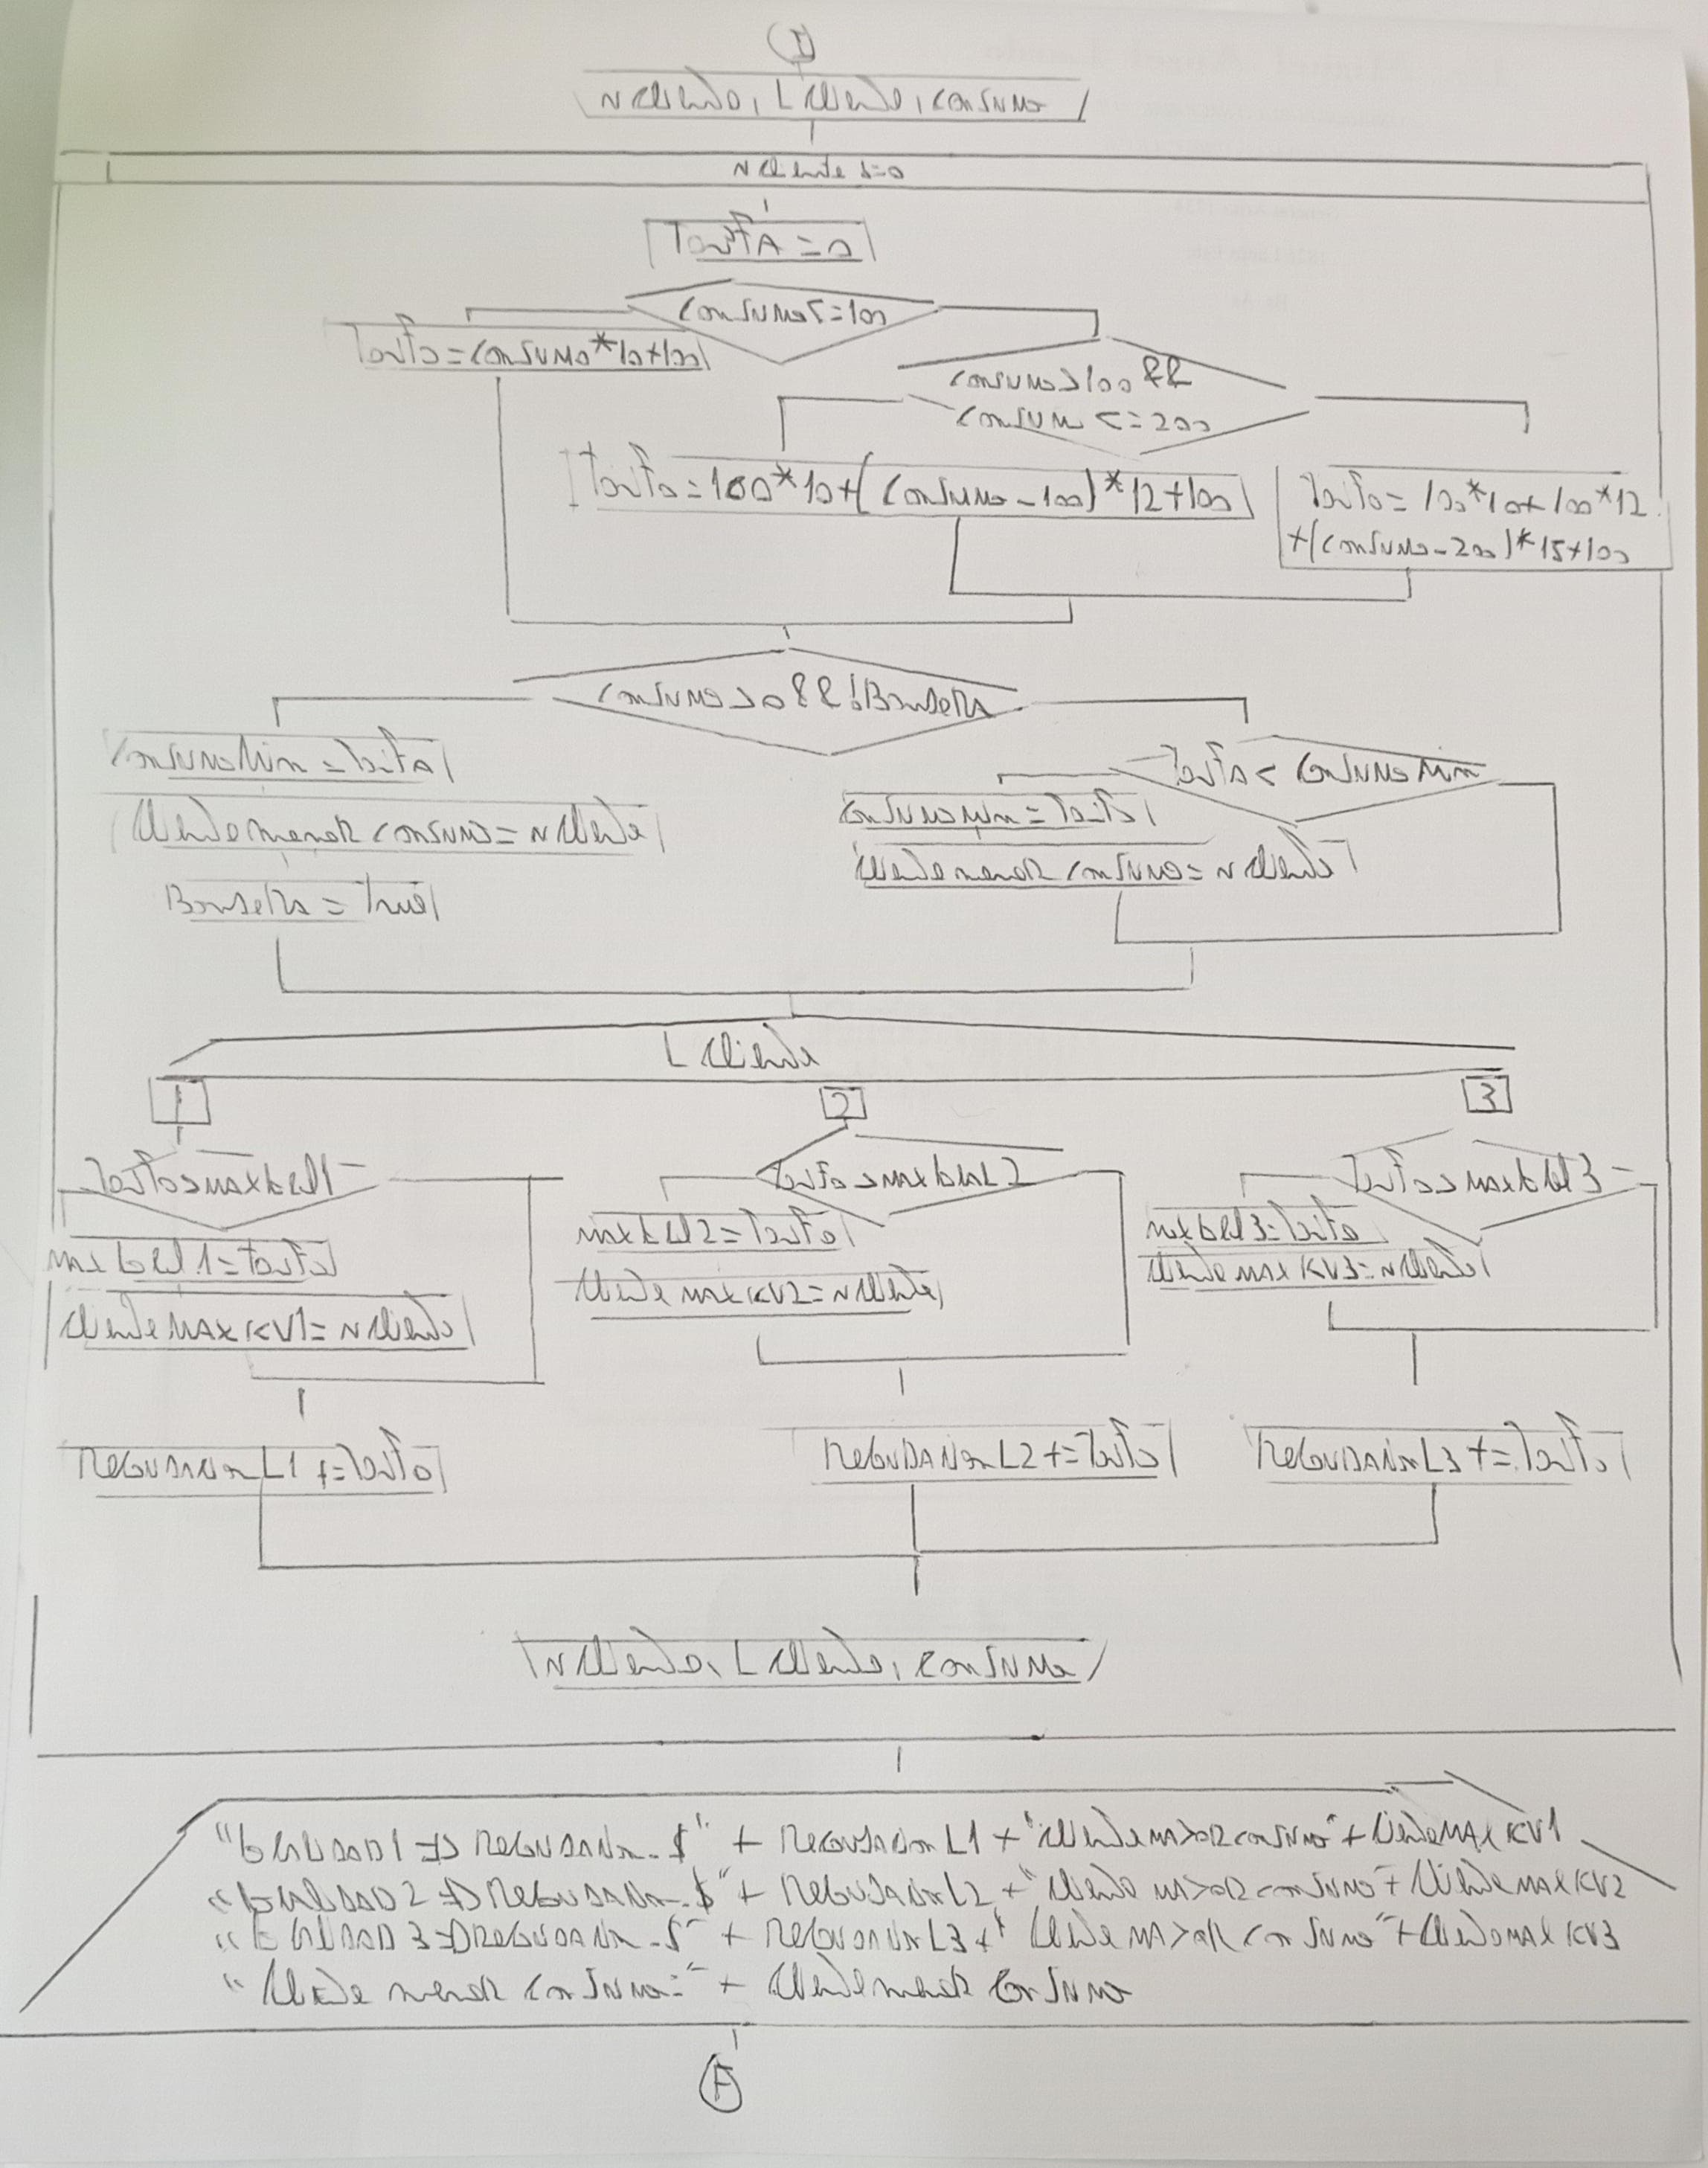 I
NCliente, LCliente, consumo
NCliente !=0
Tarifa = 0
consumo <=100
Tarifa = consumo*10+100
consumo >100 &&
consum <=200
Tarifa = 100*10+(consumo-100)*12+100
Tarifa = 100*10+100*12
+(consumo-200)*15+100
consumo >0 && !Bandera
consumoMin = Tarifa
Tarifa < consumoMin
consumoMin = Tarifa
Clientemenorconsumo = NCliente
Clientemenorconsumo = NCliente
Bandera = True
L Cliente
1
2
3
Tarifa >
Tarifa >
Tarifa >
= Tarifa
= Tarifa
= Tarifa
ClienteMAXKV1 = NCliente
ClienteMAXKV2 = NCliente
ClienteMAXKV3 = NCliente
RecaudacionL1 += Tarifa
RecaudacionL2 += Tarifa
RecaudacionL3 += Tarifa
NCliente, LCliente, consumo
"Localidad 1 => Recaudacion - $" + RecaudacionL1 + "Cliente mayor consumo" + ClienteMAXKV1
"Localidad 2 => Recaudacion - $" + RecaudacionL2 + "Cliente mayor consumo" + ClienteMAXKV2
"Localidad 3 => Recaudacion - $" + RecaudacionL3 + "Cliente mayor consumo" + ClienteMAXKV3
"Cliente menor consumo:" + Clientemenorconsumo
F